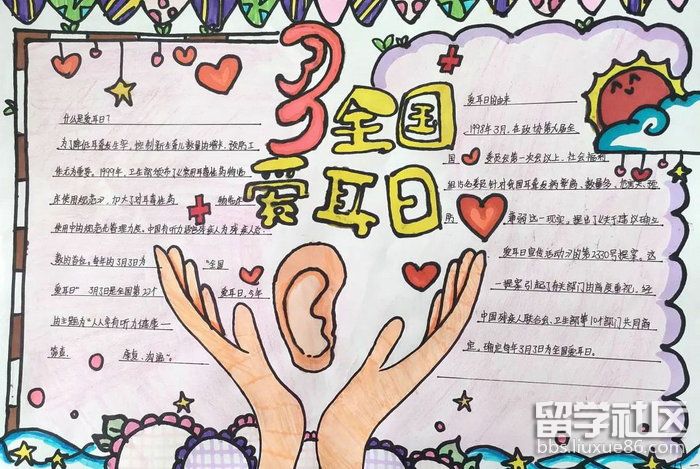 3.3
全国
爱耳日
什么是爱耳日？
为了降低耳聋发生率，控制新生聋儿数量的增长，预防工
作尤为重要。1999年，卫生部颁布了《常用耳毒性药物临
床使用规范》，加大了对耳毒性药物临床
使用中的规范化管理力度。中国有听力语言残疾人
数的首位。每年的3月3日为"全国
爱耳日"3月3日是全国第22个爱耳日，今年
的主题为"人人享有听力健康—
筛查、康复、沟通"。
爱耳日的由来
1998年3月，在政协第九届全
国委员会第一次会议上，社会福利
组15名委员针对我国耳聋发病率高、数量多、危害大、预
防薄弱这一现实，提出了《关于建议确立
爱耳日宣传活动》的第2330号提案。这
一提案引起了有关部门的高度重视，经
中国残疾人联合会、卫生部等10个部门共同商
定，确定每年3月3日为全国爱耳日。
留学社区
bbs.liuxue86.com